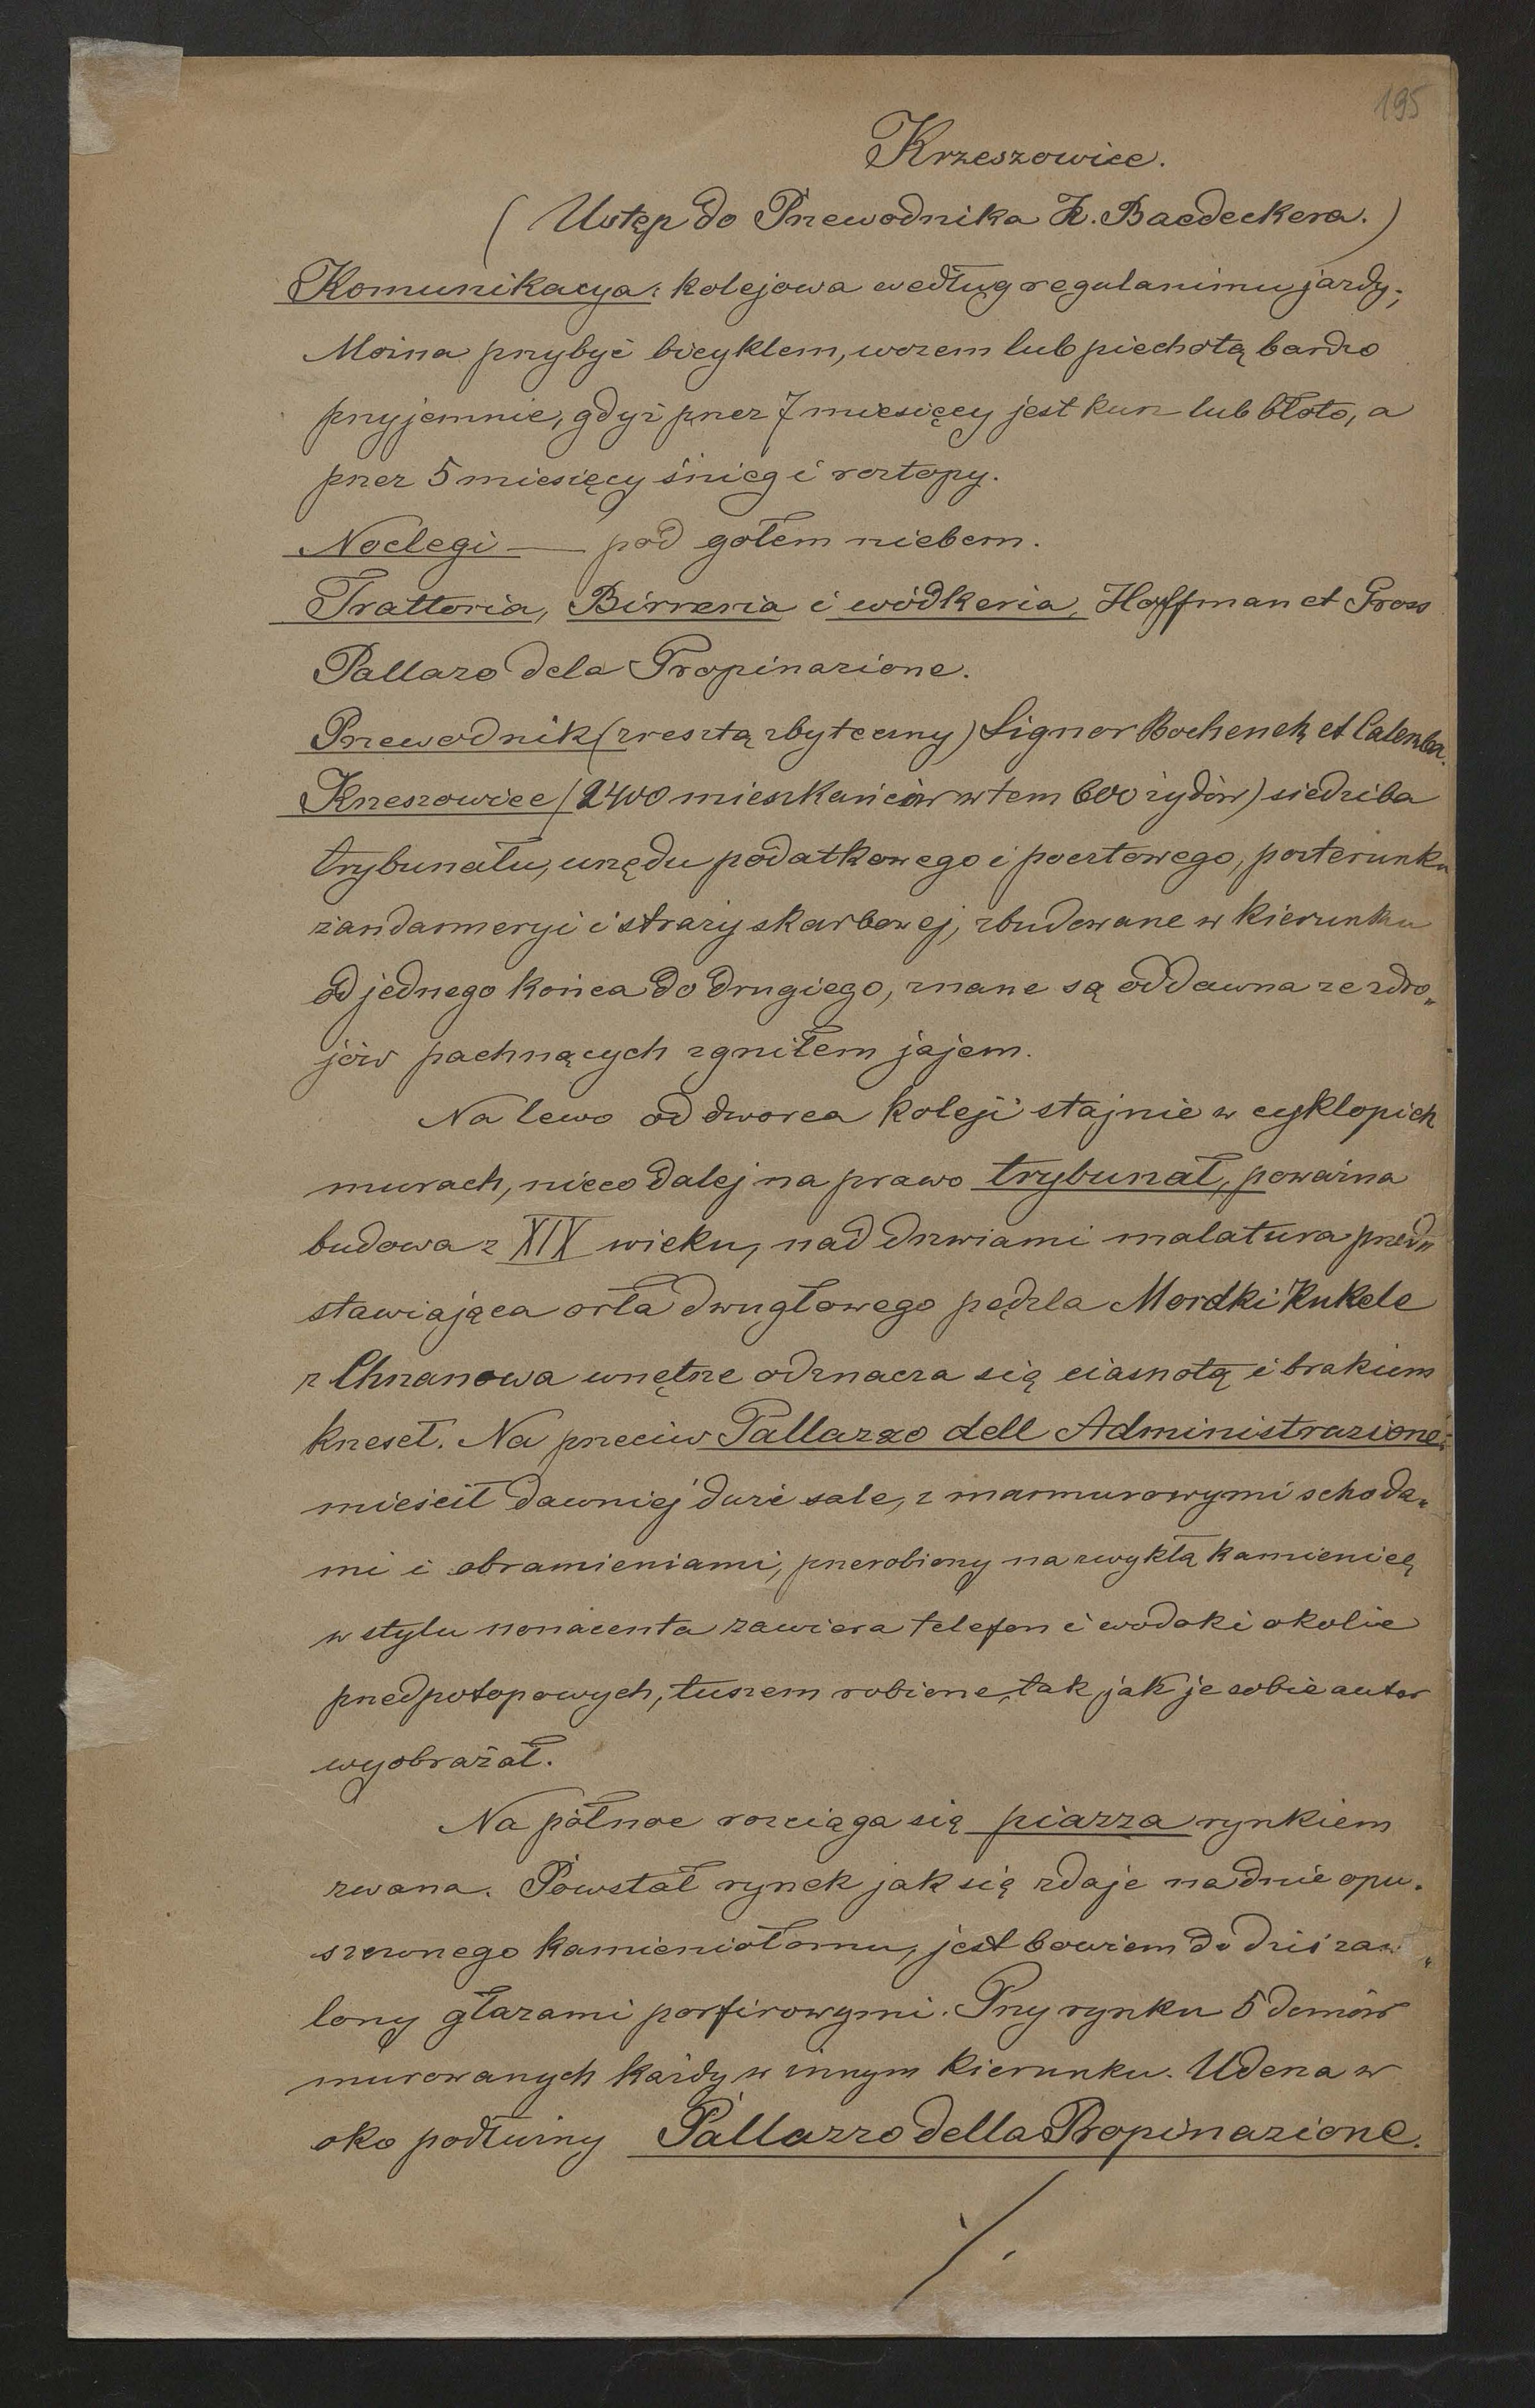 195
Krzeszowice.
(Ustęp do Przewodnika K. Baedeckera.)
Komunikacya: kolejowa według regulaminu jazdy;
Można przybyć bicyklem, wozem lub piechotą bardzo
przyjemnie, gdyż przez 7 miesięcy jest kurz lub błoto, a
przez 5 miesięcy śnieg i roztopy.
Noclegi — pod gołem niebem.
Trattoria, Birreria i wódkeria, Hoffman et Gross
Pallazo dela Propinazione.
Przewodnik (zresztą zbyteczny) Signor Bochenek et Calenba.
Krzeszowice (2400 mieszkańców w tem 600 żydów) siedziba
trybunału, urzędu podatkowego i pocztowego, porterunku
żandarmeryi i straży skarbowej, zbudowane w kierunku
od jednego końca do drugiego, znane są oddawna ze zdro„
jów pachnących zgniłem jajem.
Na lewo od dworca koleji stajnie w cyklopich
murach, nieco dalej na prawo trybunał, poważna
budowa z XIX wieku, nad drzwiami malatura przed„
stawiająca orła dwugłowego pędzla Mordki Kukele
z Chrzanowa wnętrze odznacza się ciasnotą i brakiem
krzeseł. Na przeciw Pallazzo dell Administrazione:
mieścił dawniej duże sale, z marmurowymi schoda„
mi i obramieniami, przerobiony na zwykłą kamienicę
w stylu nonacenta zawiera telefon i widoki okolic
przedpotopowych, tuszem robione, tak jak je sobie autor
wyobrażał.
Na północ rozciąga się piazza rynkiem
zwana. Powstał rynek jak się zdaje na dnie opu„
szczonego kamieniołomu, jest bowiem do dziś zaw„
lony głazami porfirowymi. Przy rynku 5 domów
murowanych każdy w innym kierunku. Uderza w
oko podłużny Pallazzo della Propinazione.
./.